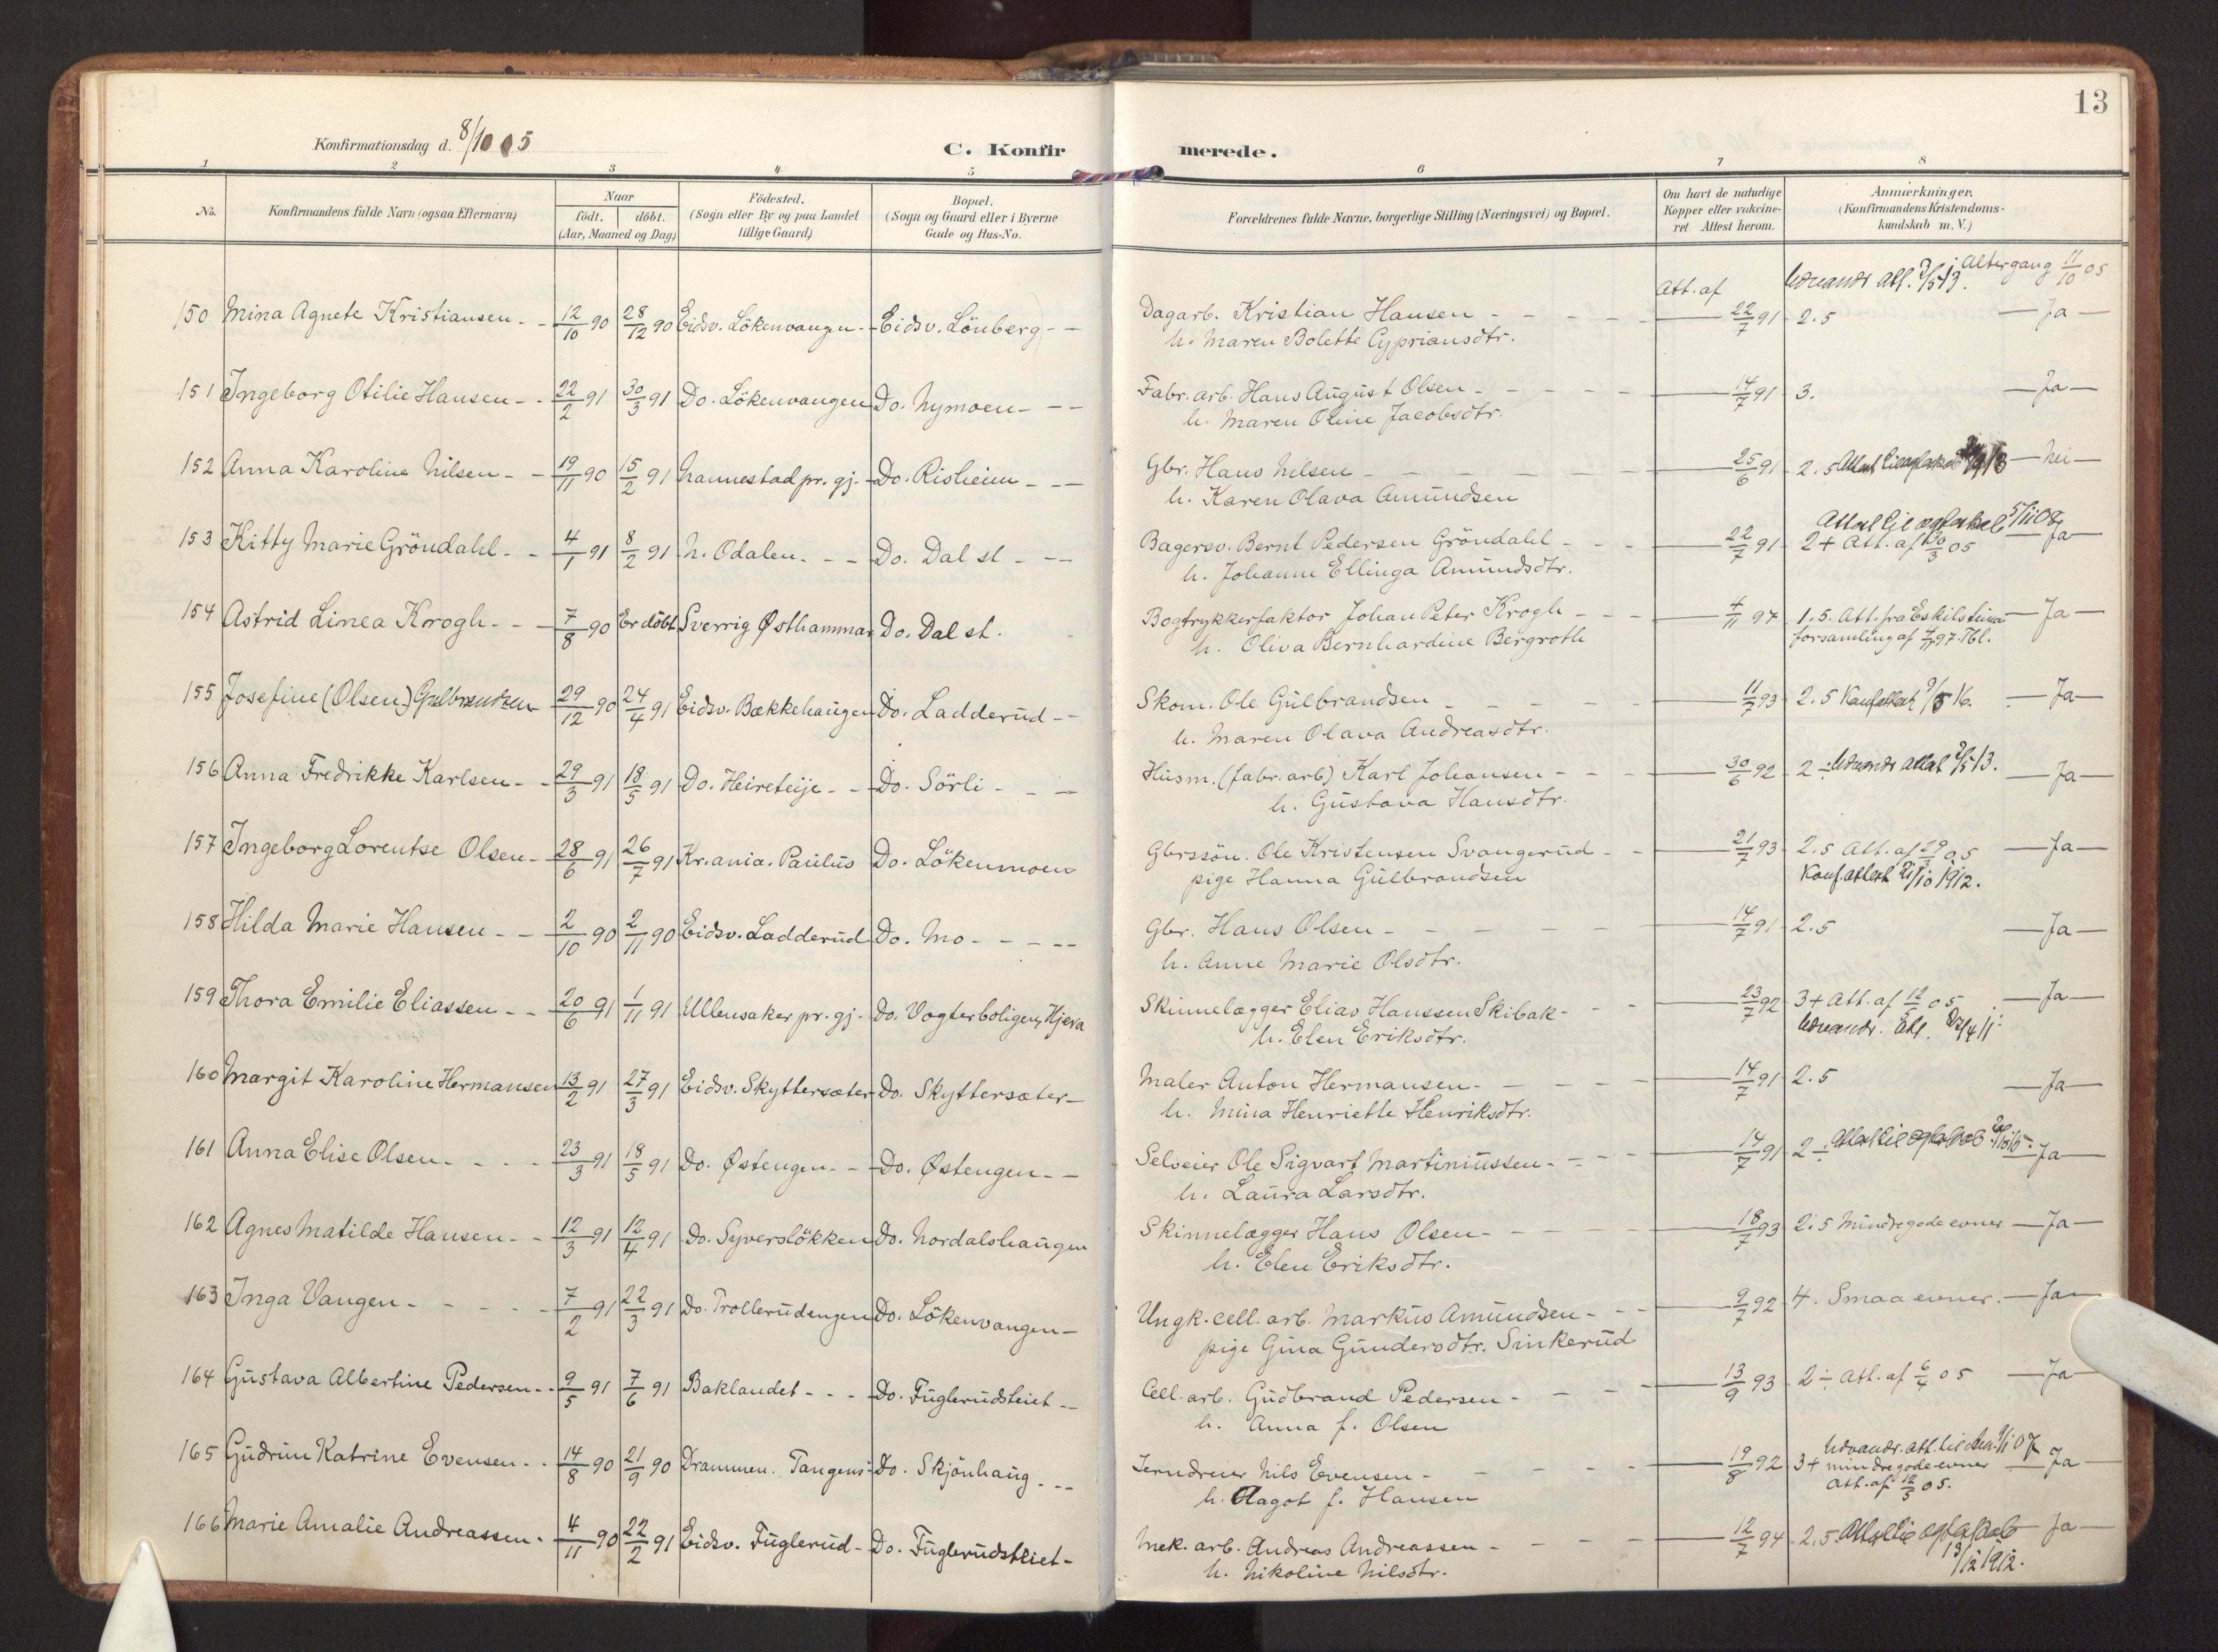 13
Konfirmationsdag d. 8/10 05
C. Konfir merede.
1 2 3 4 5 6 7 8
No. Konfirmandens fulde Navn (ogsaa Efternavn) Naar Födested. Bopæl. Forældrenes fulde Navne, borgerlige Stilling (Næringsvei) og Bopæl. Om havt de naturlige Anmærkninger.
födt. döbt. (Sogn eller By og paa Landet (Sogn og Gaard eller i Byerne Kopper eller vakcine- (Konfirmandens Kristendoms-
(Aar, Maaned og Dag) tillige Gaard) Gade og Hus-No. ret. Attest herom. kundskab m. V.)
Att. af Udvandr att. 2/5 13. Altergang 11/10 05
150 Mina Agnete Kristiansen - - 12/10 90 28/12 90 Eidsv. Lökenvangen - Eidsv. Lönberg - - Dagarb. Kristian Hansen - - 22/7 91 2.5 — Ja —
h. Maren Bolette Cypriansdtr.
151 Ingeborg Otilie Hansen - - 22/2 91 30/3 91 Do. Lökenvangen Do. Nymoen - - - Fabr. arb. Hans August Olsen - - 14/7 91 3. — Ja —
h. Maren Oline Jacobsdtr.
152 Anna Karoline Nilsen - - 19/11 90 15/2 91 Nannestad pr. gj. - Do. Risheim - - - Gbr. Hans Nilsen - - 25/6 91 2.5 Attest til ægteskab — Nei —
h. Karen Olava Amundsen
Attest til ægteskab 5/11 07
153 Kitty Marie Gröndahl - - 4/1 91 8/2 91 N. Odalen - - - Do. Dal st - - - Bagersv. Bernt Pedersen Gröndahl - - 22/7 91 2+ Att. af 30/3 05 — Ja —
h. Johanne Ellinga Amundsdtr.
154 Astrid Linea Krogh - - - 7/8 90 Er döbt Sverrig Østhammar Do. Dal st. Bogtrykkerfaktor Johan Peter Krogh - - 4/11 97 1.5. Att. fra Eskilstuna — Ja —
h. Oliva Bernhardine Bergroth forsamling af 4/11 97. Tbl.
155 Josefine (Olsen) Gulbrandsen 29/12 90 24/4 91 Eidsv. Bækkehaugen Do. Ladderud - - Skom. Ole Gulbrandsen - - 11/7 93 2.5 Konf. attest 9/5 16. — Ja —
h. Maren Olava Andreasdtr.
156 Anna Fredrikke Karlsen - - 29/3 91 18/5 91 Do. Heireteije - - Do. Sörli - - - Husm. (fabr. arb) Karl Johansen - - 30/6 92 2 ÷ Udvandr attest 2/5 13. — Ja —
h. Gustava Hansdtr.
157 Ingeborg Lorentse Olsen - 28/6 91 26/7 91 Kr.ania. Paulus Do. Lökenmoen Gbrssön. Ole Kristensen Svangerud - - 21/7 93 2.5 Att. af 29/3 05 — Ja —
pige Hanna Gulbrandsen Konf. attest 21/10 1912.
158 Hilda Marie Hansen - - 2/10 90 2/11 90 Eidsv. Ladderud Do. Mo - - - - Gbr. Hans Olsen - - 14/7 91 2.5 — Ja —
h. Anne Marie Olsdtr.
159 Thora Emilie Eliassen - - 20/6 91 1/11 91 Ullensaker pr. gj. - Do. Vogterboligen, Hjera Skinnelægger Elias Hanssen Skibak - - 23/7 92 3+ Att. af 12/5 05 — Ja —
h. Elen Eriksdtr. Udvandr. Att.
160 Margit Karoline Hermansen 13/2 91 27/3 91 Eidsv. Skyttersæter - Do. Skyttersæter - Maler Anton Hermansen - - 14/7 91 2.5 — Ja —
h. Mina Henriette Henriksdtr.
161 Anna Elise Olsen - - - - 23/3 91 18/5 91 Do. Østengen - - Do. Østengen - - Selveier Ole Sigvart Martiniussen - - 14/7 91 2 ÷ Attest til ægteskab — Ja —
h. Laura Larsdtr.
162 Agnes Matilde Hansen - - 12/3 91 12/4 91 Do. Syverslökken Do. Nordalshaugen Skinnelægger Hans Olsen - - 18/7 93 2.5 Mindre gode evner — Ja —
h. Elen Eriksdtr.
163 Inga Vangen - - - - 7/2 91 22/3 91 Do. Trollerudengen Do. Lökenvangen - Ungk. cell. arb. Markus Amundsen - - 9/7 92 4. Smaa evner. — Ja —
pige Gina Gundersdtr. Sinkerud
164 Gustava Albertine Pedersen - - 9/5 91 7/6 91 Baklandet - - - Do. Fuglerudsteiet - - Cell. arb. Gudbrand Pedersen - - 13/9 93 2 ÷ Att. af 6/4 05 — Ja —
h. Anna f. Olsen
Udvandr. att. til
165 Gudrun Katrine Evensen - - 14/8 90 21/9 90 Drammen. Tangens - Do. Skjönhaug - - - Jerndreier Nils Evensen - - 19/8 92 3+ mindre gode evner — Ja —
h. Hagot f. Hansen Att. af 12/5 05.
166 Marie Amalie Andreassen - 4/11 90 22/2 91 Eidsv. Fuglerud - Do. Fuglerudsteiet - Mek. arb. Andreas Andreassen - - 12/7 94 2.5 Attest til ægteskab — Ja —
h. Nikoline Nilsdtr. 13/12 1912.